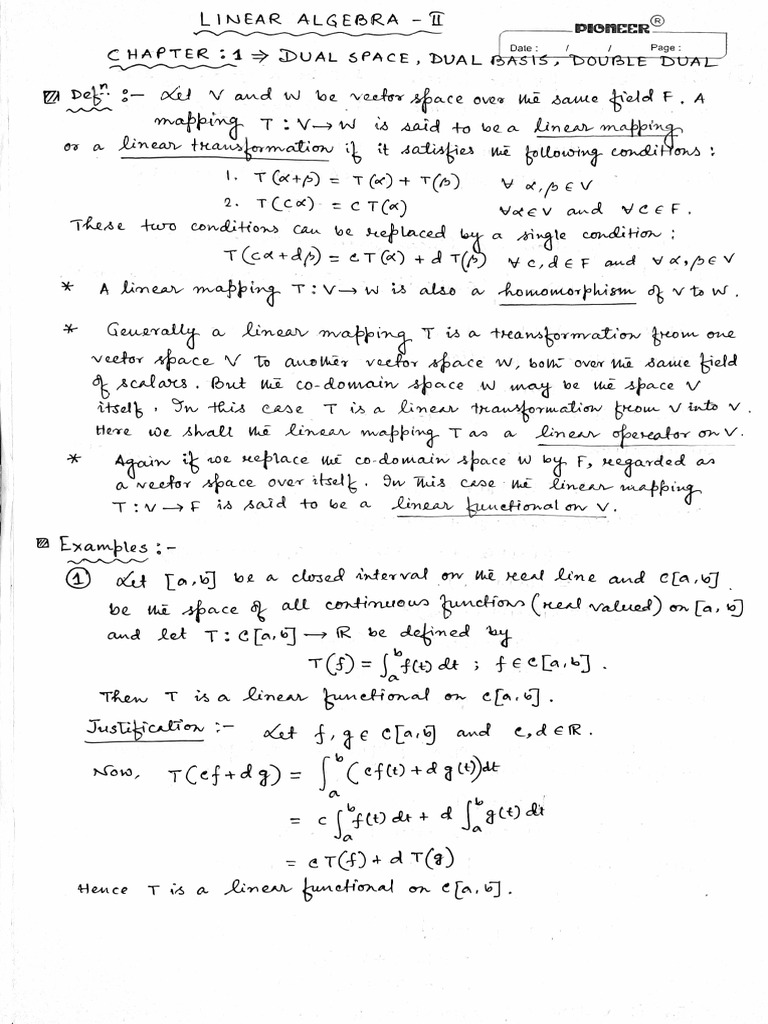 LINEAR ALGEBRA - II
PIONEER ®
Date : / / Page :
CHAPTER : 1 ⇒ DUAL SPACE, DUAL BASIS, DOUBLE DUAL
Defn. :- Let V and W be vector space over the same field F. A
mapping T : V → W is said to be a linear mapping
or a linear transformation if it satisfies the following conditions :
1. T(α+β) = T(α) + T(β) ∀ α, β ∈ V
2. T(cα) = c T(α) ∀ α ∈ V and ∀ c ∈ F.
These two conditions can be replaced by a single condition :
T(cα+dβ) = c T(α) + d T(β) ∀ c, d ∈ F and ∀ α, β ∈ V
* A linear mapping T : V → W is also a homomorphism of V to W.
* Generally a linear mapping T is a transformation from one
vector space V to another vector space W, both over the same field
of scalars. But the co-domain space W may be the space V
itself. In this case T is a linear transformation from V into V.
Here we shall the linear mapping T as a linear opereator on V.
* Again if we replace the co-domain space W by F, regarded as
a vector space over itself. In this case the linear mapping
T : V → F is said to be a linear functional on V.
Examples :-
① Let [a, b] be a closed interval on the real line and C[a, b]
be the space of all continuous functions (real valued) on [a, b]
and let T : C[a, b] → ℝ be defined by
T(f) = ∫ₐᵇ f(t) dt ; f ∈ C[a, b].
Then T is a linear functional on C[a, b].
Justification :- Let f, g ∈ C[a, b] and c, d ∈ ℝ.
Now, T(cf + dg) = ∫ₐᵇ (cf(t) + d g(t)) dt
= c ∫ₐᵇ f(t) dt + d ∫ₐᵇ g(t) dt
= c T(f) + d T(g)
Hence T is a linear functional on C[a, b].